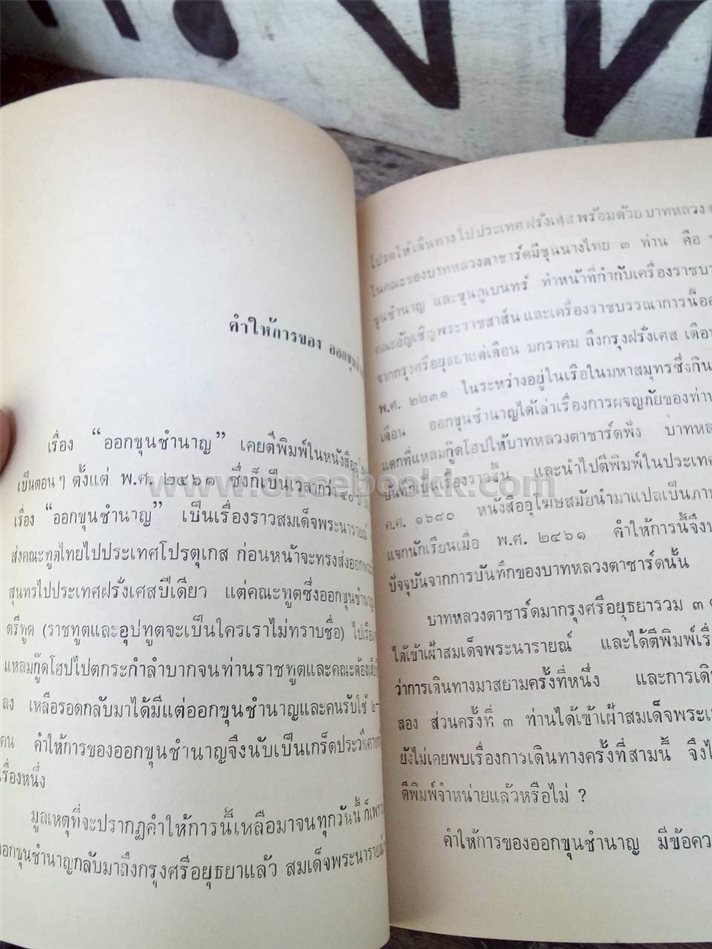 คำให้การของ ออกขุนชำนาญ
เรื่อง “ออกขุนชำนาญ” เคยตีพิมพ์ในหนังสืออุโฆษ
เป็นตอนๆ ตั้งแต่ พ.ศ. ๒๔๖๑ ซึ่งก็เป็นเวลากว่า
เรื่อง “ออกขุนชำนาญ” เป็นเรื่องราวสมเด็จพระนารายณ์
ส่งคณะทูตไทยไปประเทศโปรตุเกส ก่อนหน้าจะทรงส่ง
สุนทรไปประเทศฝรั่งเศสปีเดียว แต่คณะทูตซึ่งออกขุนชำนาญ
ตรีทูต (ราชทูตและอุปทูตจะเป็นใครเราไม่ทราบชื่อ) ไปเรือ
แหลมกู๊ดโฮปไปตกระกำลำบากจนท่านราชทูตและคณะต้อง
ลง เหลือรอดกลับมาได้มีแต่ออกขุนชำนาญและคนรับใช้
คน คำให้การของออกขุนชำนาญจึงนับเป็นเกร็ดประวัติ
เรื่องหนึ่ง
มูลเหตุที่จะปรากฏคำให้การนี้เหลือมาจนทุกวันนี้ ก็เพราะ
ออกขุนชำนาญกลับมาถึงกรุงศรีอยุธยาแล้ว สมเด็จพระนารายณ์
โปรดให้เดินทางไปประเทศฝรั่งเศสพร้อมด้วย บาทหลวง
ในคณะของบาทหลวงตาชาร์ดมีขุนนางไทย ๓ ท่าน คือ
ขุนชำนาญ และขุนภูเบนทร์ ทำหน้าที่กำกับเครื่องราช
คณะอัญเชิญพระราชสาส์น และเครื่องราชบรรณาการนี้ออก
จากกรุงศรีอยุธยาแต่เดือน มกราคม ถึงกรุงฝรั่งเศส เดือน
พ.ศ. ๒๒๓๑ ในระหว่างอยู่ในเรือในมหาสมุทรซึ่งกิน
เดือน ออกขุนชำนาญได้เล่าเรื่องการผจญภัยของท่าน
แตกที่แหลมกู๊ดโฮปให้บาทหลวงตาชาร์ดฟัง บาทหลวง
บันทึกเป็นเรื่องราวขึ้น และนำไปตีพิมพ์ในประเทศ
ค.ศ. ๑๖๘๐ หนังสืออุโฆษสมัยนำมาแปลเป็น
แจกนักเรียนเมื่อ พ.ศ. ๒๔๖๑ คำให้การนี้จึง
ปัจจุบันจากการบันทึกของบาทหลวงตาชาร์ดนั้น
บาทหลวงตาชาร์ดมากรุงศรีอยุธยารวม ๓
ได้เข้าเฝ้าสมเด็จพระนารายณ์ และได้ตีพิมพ์เรื่อง
ว่าการเดินทางมาสยามครั้งที่หนึ่ง และการเดิน
สอง ส่วนครั้งที่ ๓ ท่านได้เข้าเฝ้าสมเด็จพระ
ยังไม่เคยพบเรื่องการเดินทางครั้งที่สามนี้ จึง
ตีพิมพ์จำหน่ายแล้วหรือไม่ ?
คำให้การของออกขุนชำนาญ มีข้อความ